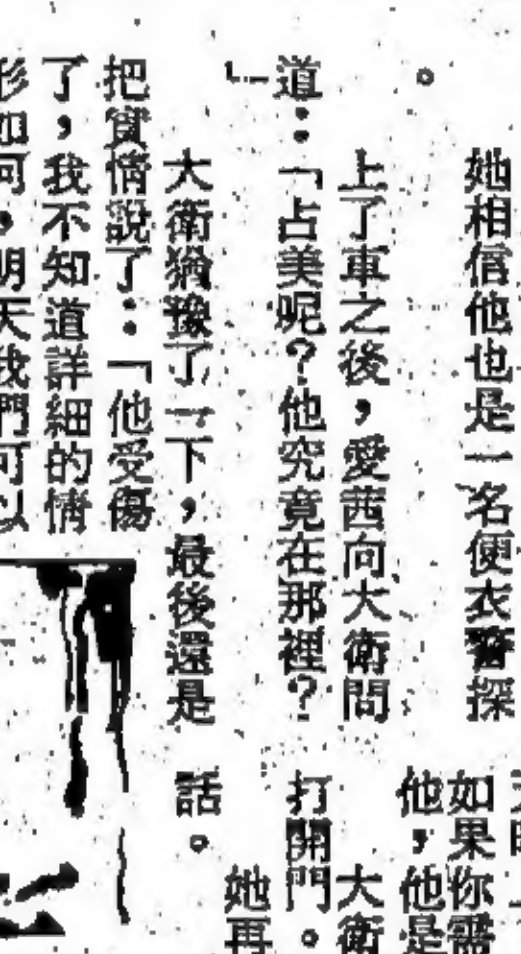 她相信他也是一名便衣警探
。
上了車之後，愛茜向大衛問
道：「占美呢？他究竟在那裡？
」
大衛猶豫了一下，最後還是
把實情說了：「他受傷
了，我不知道詳細的情
形如何，明天我們可以
如果你需
他，他是
大衛
打開門。
她再
話。